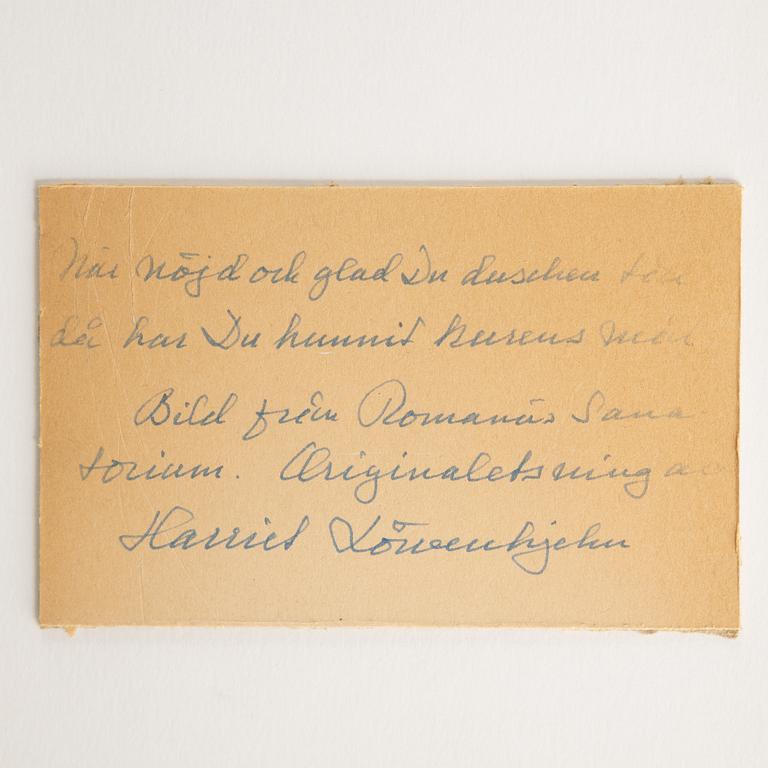 När nöjd och glad Du duschen
då har Du hunnit kurens mål
Bild från Romanäs Sana
torium. Originaletsning av
Harriet Löwenhjelm